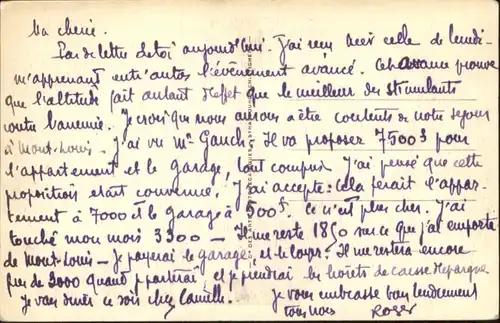 Ma cherie.
Pas de lettre de toi aujourd'hui. J'ai reçu hier celle de lundi
m'apprenant entr'autres l'évènement avancé. Cet avance prouve
que l'altitude fait autant d'effet que le meilleur des stimulants
contre l'anemie. Je crois que nous avons à être contents de notre sejour
à Mont-Louis. J'ai vu Mr Gauch. Il va proposer 7500f pour
l'appartement et le garage, tout compris J'ai pensé que cette
proposition etait convenue. J'ai accepté: cela ferait l'appar-
tement à 7000 et le garage à 500f. Ce n'est plus cher. J'ai
touché mon mois 3300 - Il me reste 1850 sur ce que j'ai emporté
de Mont-Louis - Je payerai le garage, et le loyer. Il me restera encore
près de 3000 quand je partirai et je prendrai les livrets de caisse d'epargne
Je vais diner ce soir chez Camille. Je vous embrasse bien tendrement
tous
Roger